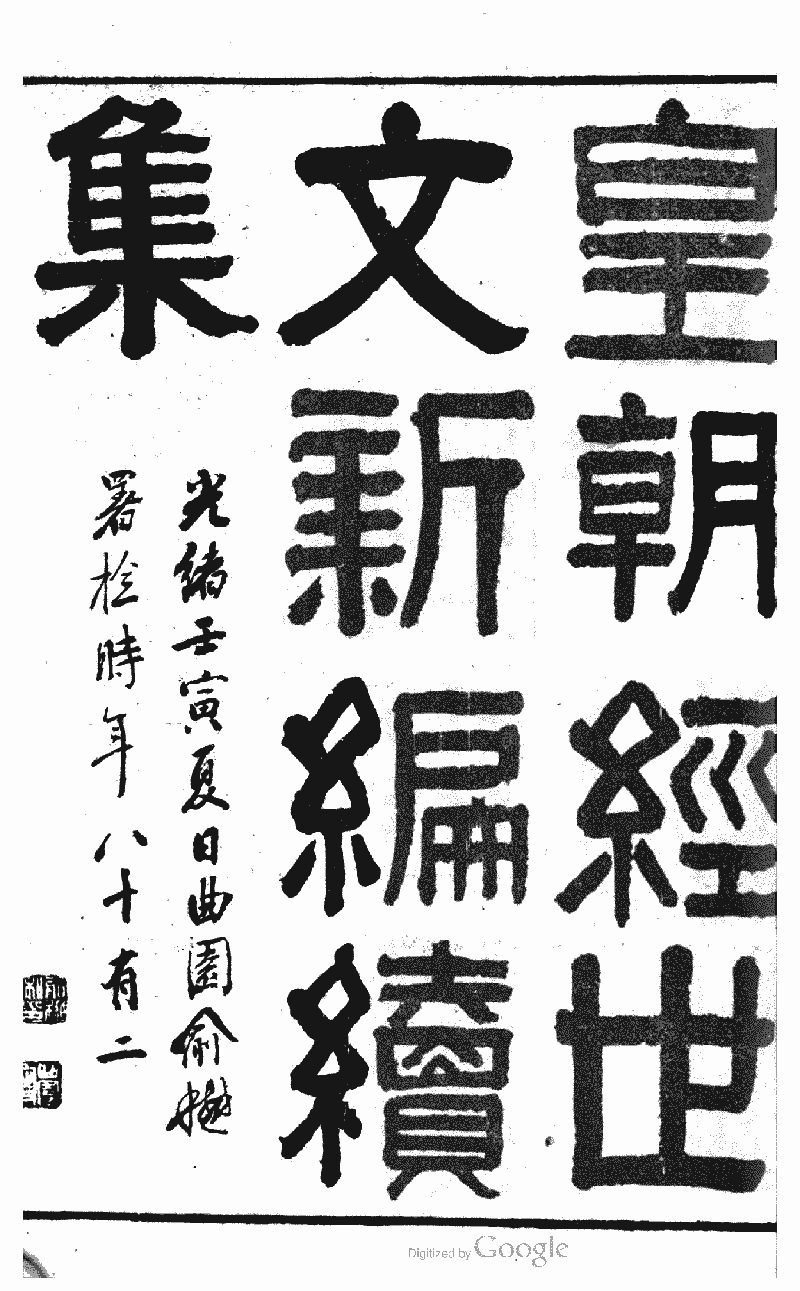 皇朝經世
文新編續
集
光緒壬寅夏日曲園俞樾
署檢時年八十有二
Digitized by Google